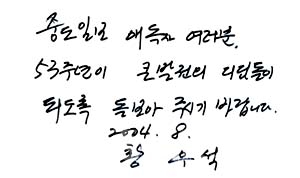 중도일보 애독자 여러분,
53주년이 큰 발전의 디딤돌이
되도록 돌보아 주시기 바랍니다.
2004. 8.
황 우 석